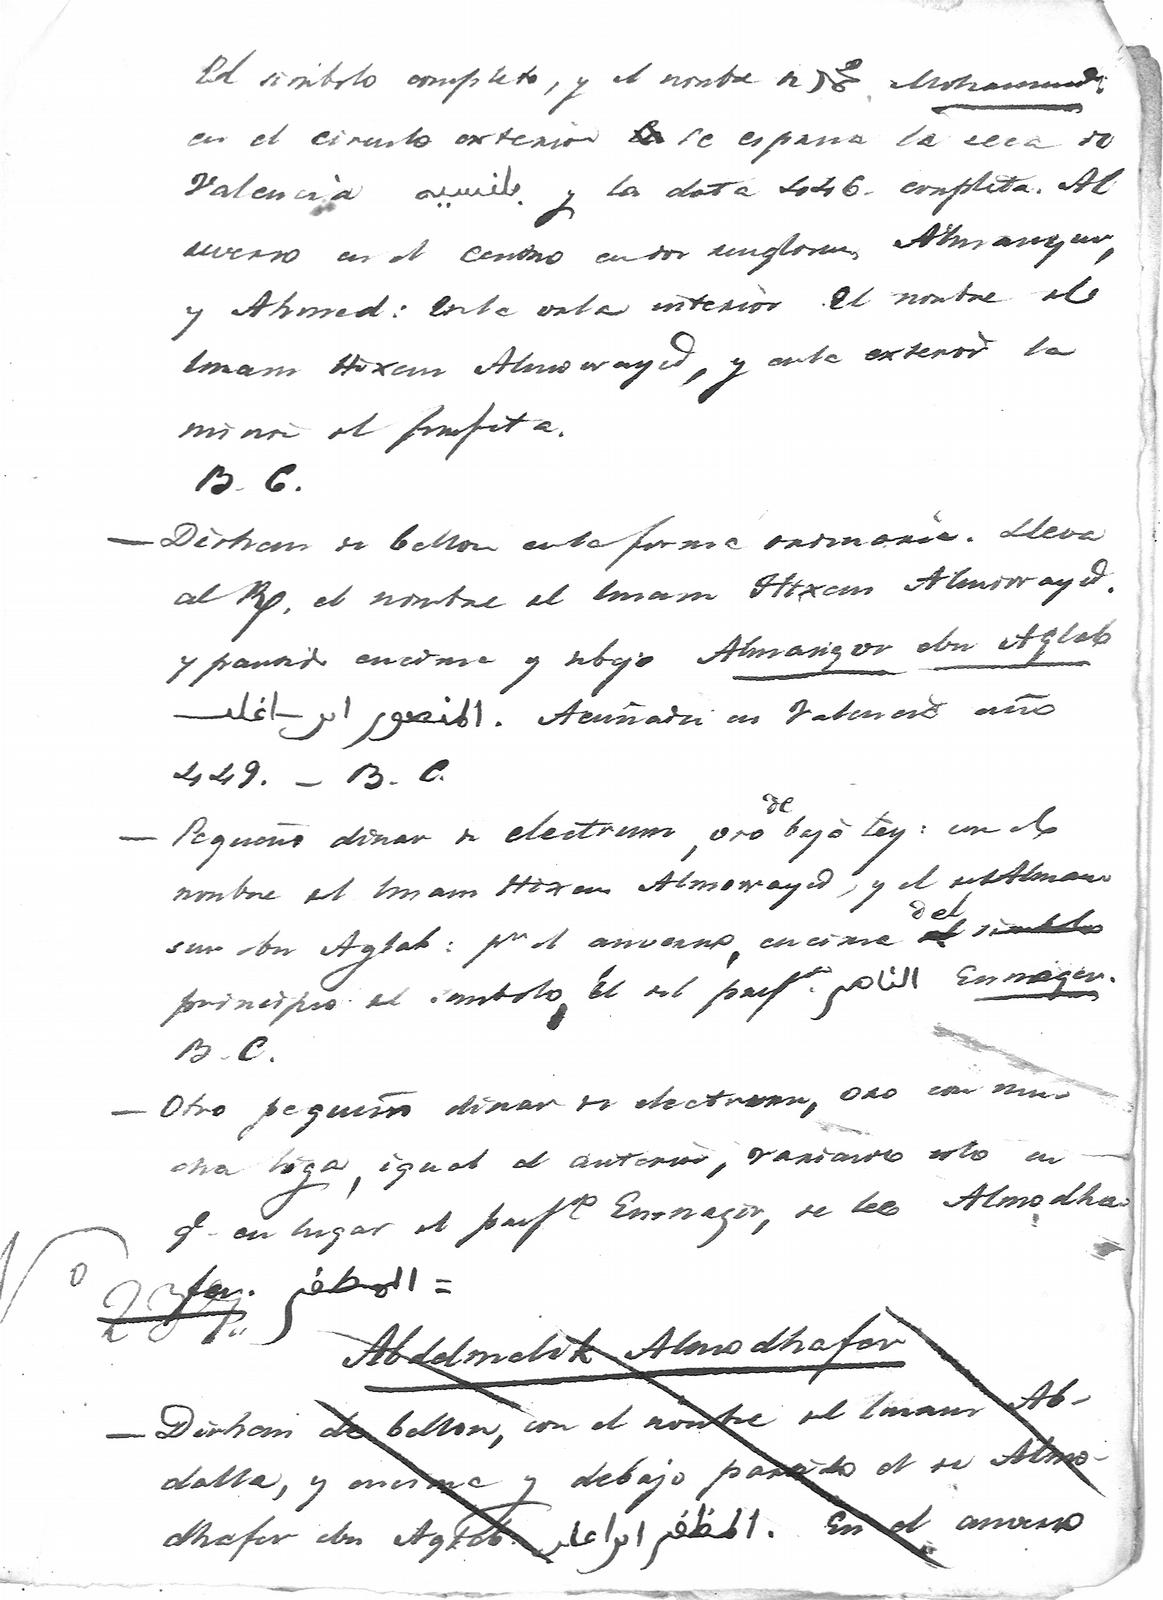 El simbolo completo, y el nombre de Mohammad:
en el circulo exterior se espresa la ceca de
Valencia بلنسيه y la data 446. completa. Al
reverso en el centro en dos renglones, Almançur,
y Ahmed: En la orla interior El nombre del
Imam Hixem Almowayed, y en la exterior la
mision del profeta.
B. C.
— Dirhem de bellon en la forma ordinaria. Lleva
al Rº. el nombre del Imam Hixem Almowayed.
y partido encima y debajo Almançor ebn Aglab
المنصور ابن اغلب. Acuñada en Valencia año
449. — B. C.
— Pequeño dinar de electrum, oro de bajo ley: con el
nombre del Imam Hixem Almowayed, y el del Alman-
sur ebn Aglab: pr el anverso, encima del simbolo
principio del simbolo, El del pref.to الناصر Ennaçer.
B. C.
— Otro pequeño dinar de electrum, oro con mu-
cha liga, igual al anterior, variando solo en
q. en lugar del pref.to Ennaçer, se lee Almodha-
fer. المظفر =
Nº
234.
Abdelmelik Almodhafer
— Dirhem de bellon, con el nombre del Imam Ab-
dalla, y encima y debajo partido el de Almo-
dhafer ebn Aglab المظفر ابن اغلب. En el anverso